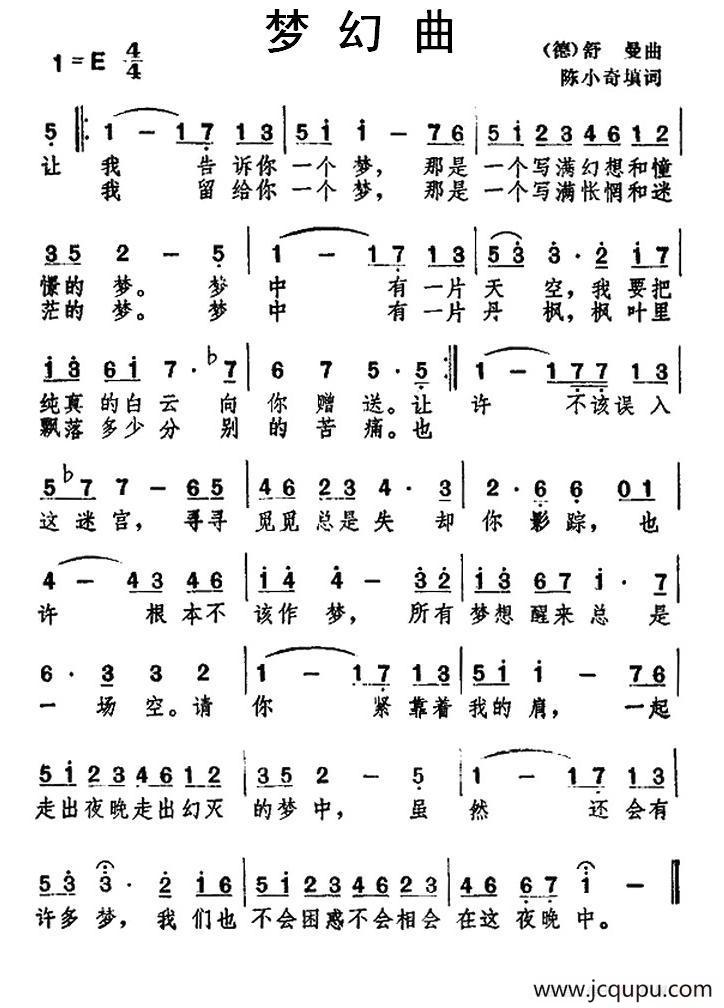 梦幻曲
1=E 4/4
（德）舒 曼曲
陈小奇填词
5 1 - 1 7 1 3 5 1 1 - 7 6 5 1 2 3 4 6 1 2
让 我 告诉你 一个 梦，那是 一个写满幻想和憧
我 留给你 一个 梦，那是 一个写满怅惘和迷
3 5 2 - 5 1 - 1 7 1 3 5 3 3 · 2 1 7
憬的 梦。梦 中 有 一片 天 空，我 要把
茫的 梦。梦 中 有 一片 丹 枫，枫 叶里
1 3 6 1 7 · ♭7 6 7 5 · 5 1 - 1 7 7 1 3
纯真 的白 云 向 你 赠 送。让 许 不该误入
飘落 多少 分 别 的 苦 痛。也
5 ♭7 7 - 6 5 4 6 2 3 4 · 3 2 · 6 6 0 1
这迷 宫，寻寻 觅觅 总是 失 却 你 影 踪，也
4 - 4 3 4 6 1 4 4 - 3 2 1 3 6 7 1 · 7
许 根本不 该作 梦，所有 梦想 醒来 总 是
6 · 3 3 2 1 - 1 7 1 3 5 1 1 - 7 6
一 场 空。请 你 紧 靠着 我的 肩，一起
5 1 2 3 4 6 1 2 3 5 2 - 5 1 - 1 7 1 3
走出夜晚走出幻灭 的梦 中，虽 然 还 会有
5 3 3 · 2 1 6 5 1 2 3 4 6 3 4 4 6 6 7 1 -
许多 梦，我 们也 不会困惑不会相会 在这 夜晚 中。
www.jcqupu.com